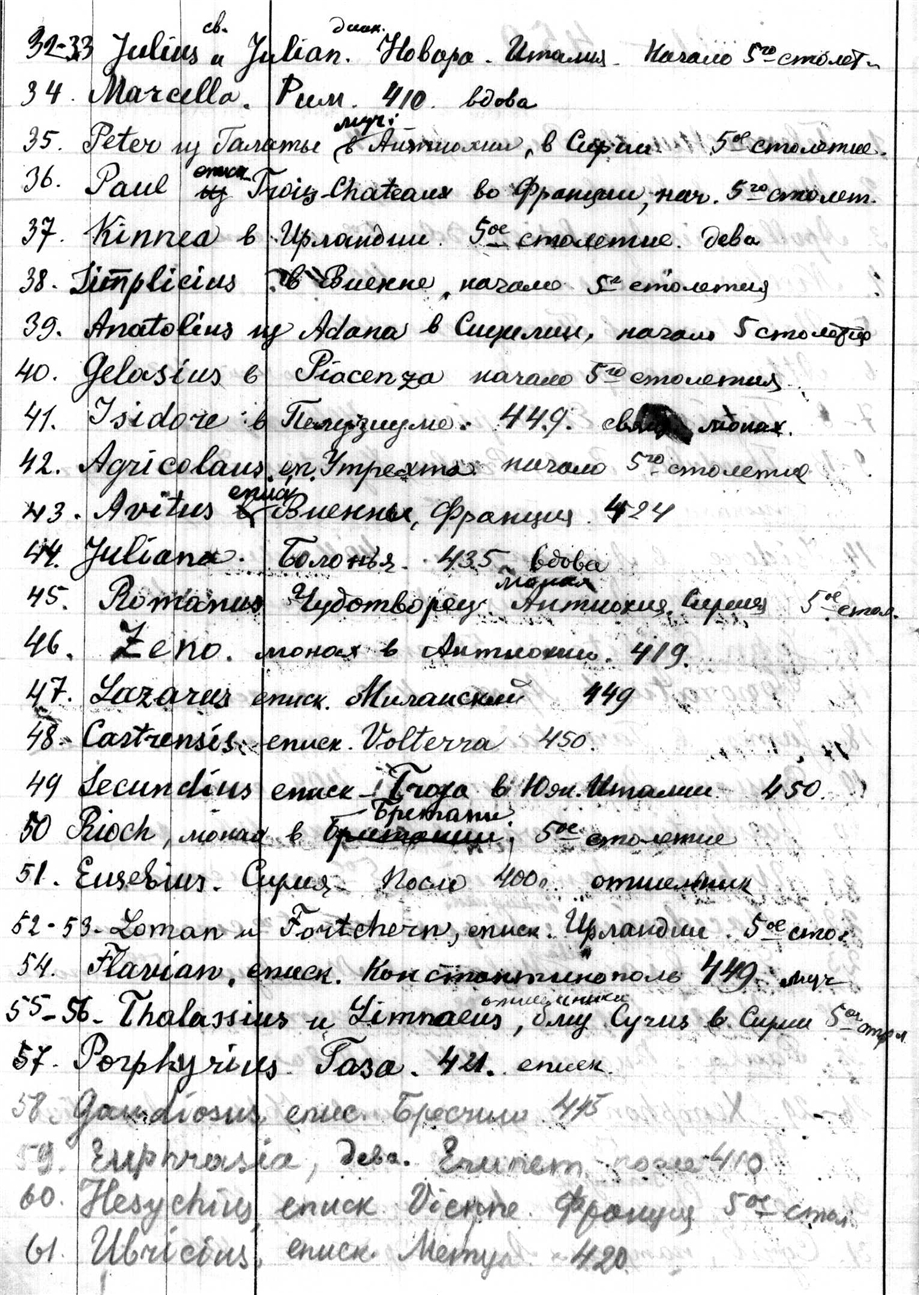 32-33 Julius св. и Julian. диак. Новара. Италия. Начало 5го столет.
34. Marcella. Рим. 410. вдова
35. Peter из Галаты муч: в Антиохии, в Сирии. 5ое столетие.
36. Paul епис. Trois Chateaux во Франции, нач. 5го столет.
37. Kinnea в Ирландии. 5ое столетие. дева
38. Simplicius в Виенне, начало 5го столетия
39. Anatolius из Adana в начало 5 столетия
40. Gelasius в Piacenza начало 5го столетия
41. Isidore в Пелузиуме. 449. монах.
42. Agricolaus еп. Утрехта начало 5го столетия
43. Avitus епис. Виенны, Франция. 424
44. Juliana. Болонья. 435 вдова
45. Romanus Чудотворец монах Антиохия, Сирия 5ое стол.
46. Zeno. монах в Антиохии. 419.
47. Lazarus еписк. Миланский 449
48. Castrensis еписк. Volterra 450.
49 Secundius еписк. в Юж. Италии 450.
50 Rioch, монах в Бретани Британии; 5ое столетие
51. Eusebius. Сирия. После 400г. отшельник
52-53. Loman и Fortchern, еписк. Ирландии. 5ое стол.
54. Flavian, еписк. Константинополь 449. муч.
55-56. Thalassius и Limnaeus, отшельники близ Cyrus в Сирии 5ое стол.
57. Porphyrius Газа. 421. еписк.
58. Gaudiosus, епис. 445
59. Euphrasia, дева. Египет после 410
60. Hesychius, еписк. Vienne. Франция 5ое стол.
61. Ubricius, еписк. 420